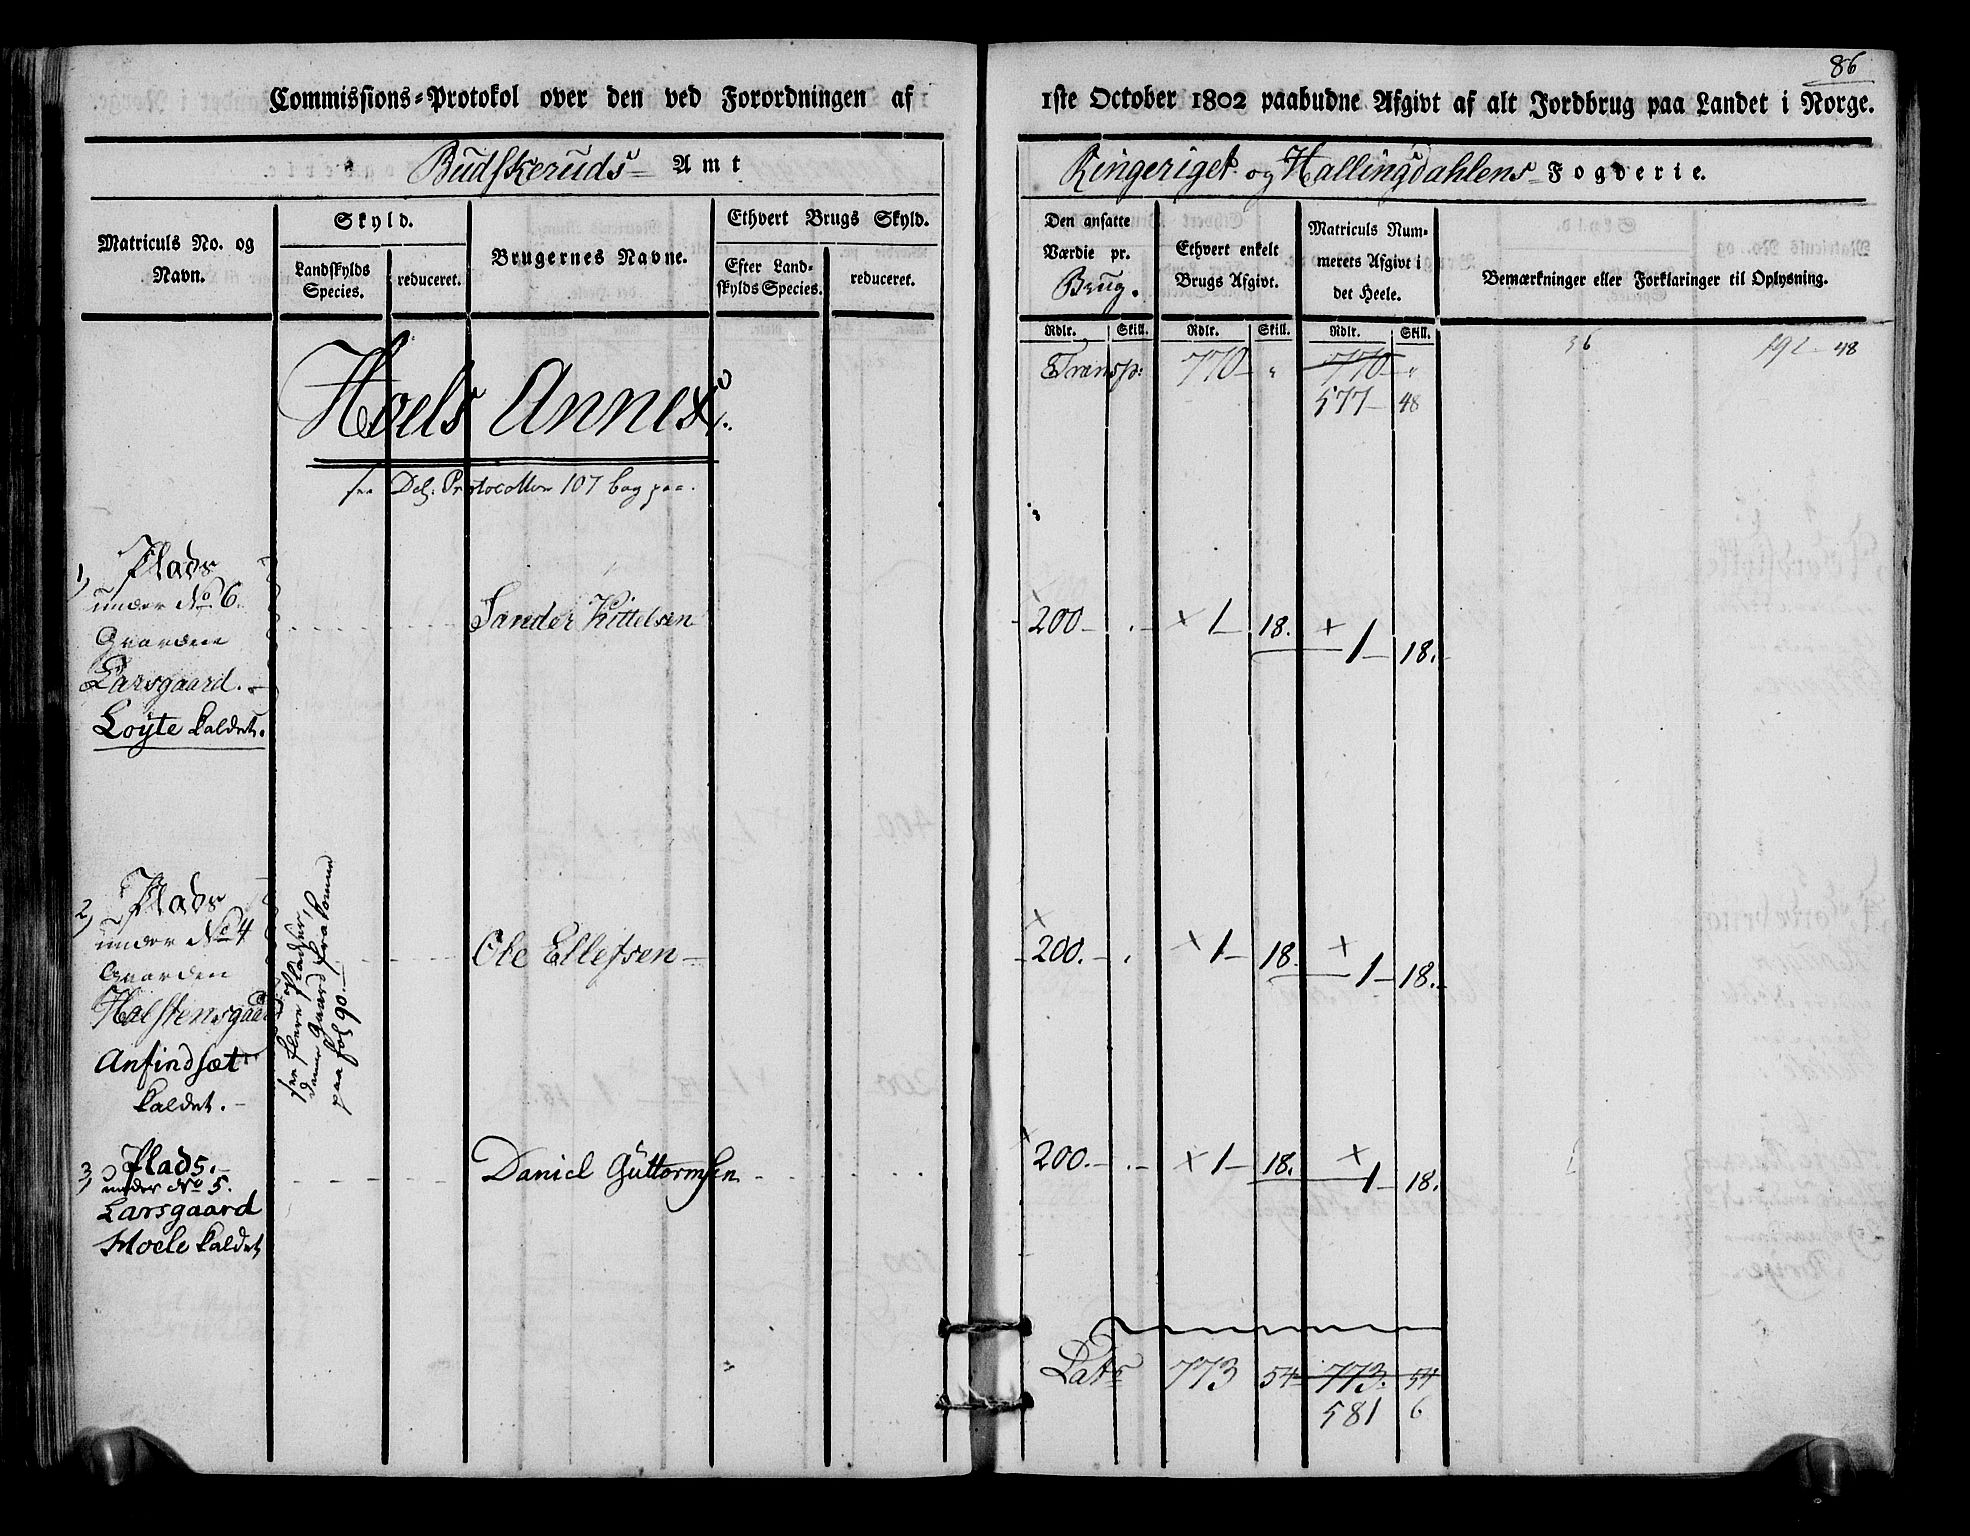 86
Commissions-Protokol over den ved Forordningen af 1ste October 1802 paabudne Afgivt af alt Jordbrug paa Landet i Norge.
Budskeruds Amt
Ringeriget og Hallingdahlens Fogderie.
Matriculs No. og Navn.
Skyld.
Landskylds Species.
reduceret.
Brugernes Navne.
Ethvert Brugs Skyld.
Efter Landskylds Species.
reduceret.
Den ansatte Værdie pr. Brug.
Ethvert enkelt Brugs Afgivt.
Matriculs Nummerets Afgivt i det Heele.
Bemærkninger eller Forklaringer til Oplysning.
Rdlr. Skill. Rdlr. Skill. Rdlr. Skill.
Transp: 770 " 770 "
577 48
Hoels Annex.
see Del. Protocollen 107 bag paa.
1, Plads
under No 6.
Gaarden
Larsgaard.
Loyte kaldet.
Sander Kittelsen
200 1 18. 1 18.
2, Plads
under No 4
Gaarden
Halstensgaard
Anfindsæt
kaldet.
see flere Pladser,
denne Gaard frakommen
paa fol 90.
Ole Ellefsen
200. 1 18. 1 18.
3, Plads.
under No 5.
Larsgaard
Moele kaldet
Daniel Guttormsen
200. 1 18. 1 18.
Lats 773 54 773. 54
581 6